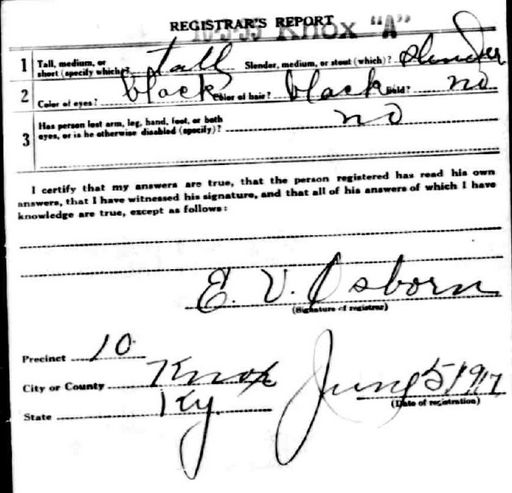 REGISTRAR'S REPORT
Knox "A"
1 Tall, medium, or short (specify which)? tall Slender, medium, or stout (which)? slender
2 Color of eyes? black Color of hair? black Bald? no
3 Has person lost arm, leg, hand, foot, or both
eyes, or is he otherwise disabled (specify)? no
I certify that my answers are true, that the person registered has read his own
answers, that I have witnessed his signature, and that all of his answers of which I have
knowledge are true, except as follows:
E. V. Osborn
(Signature of registrar)
Precinct 10
City or County Knox
State Ky
June 5 1917
(Date of registration)